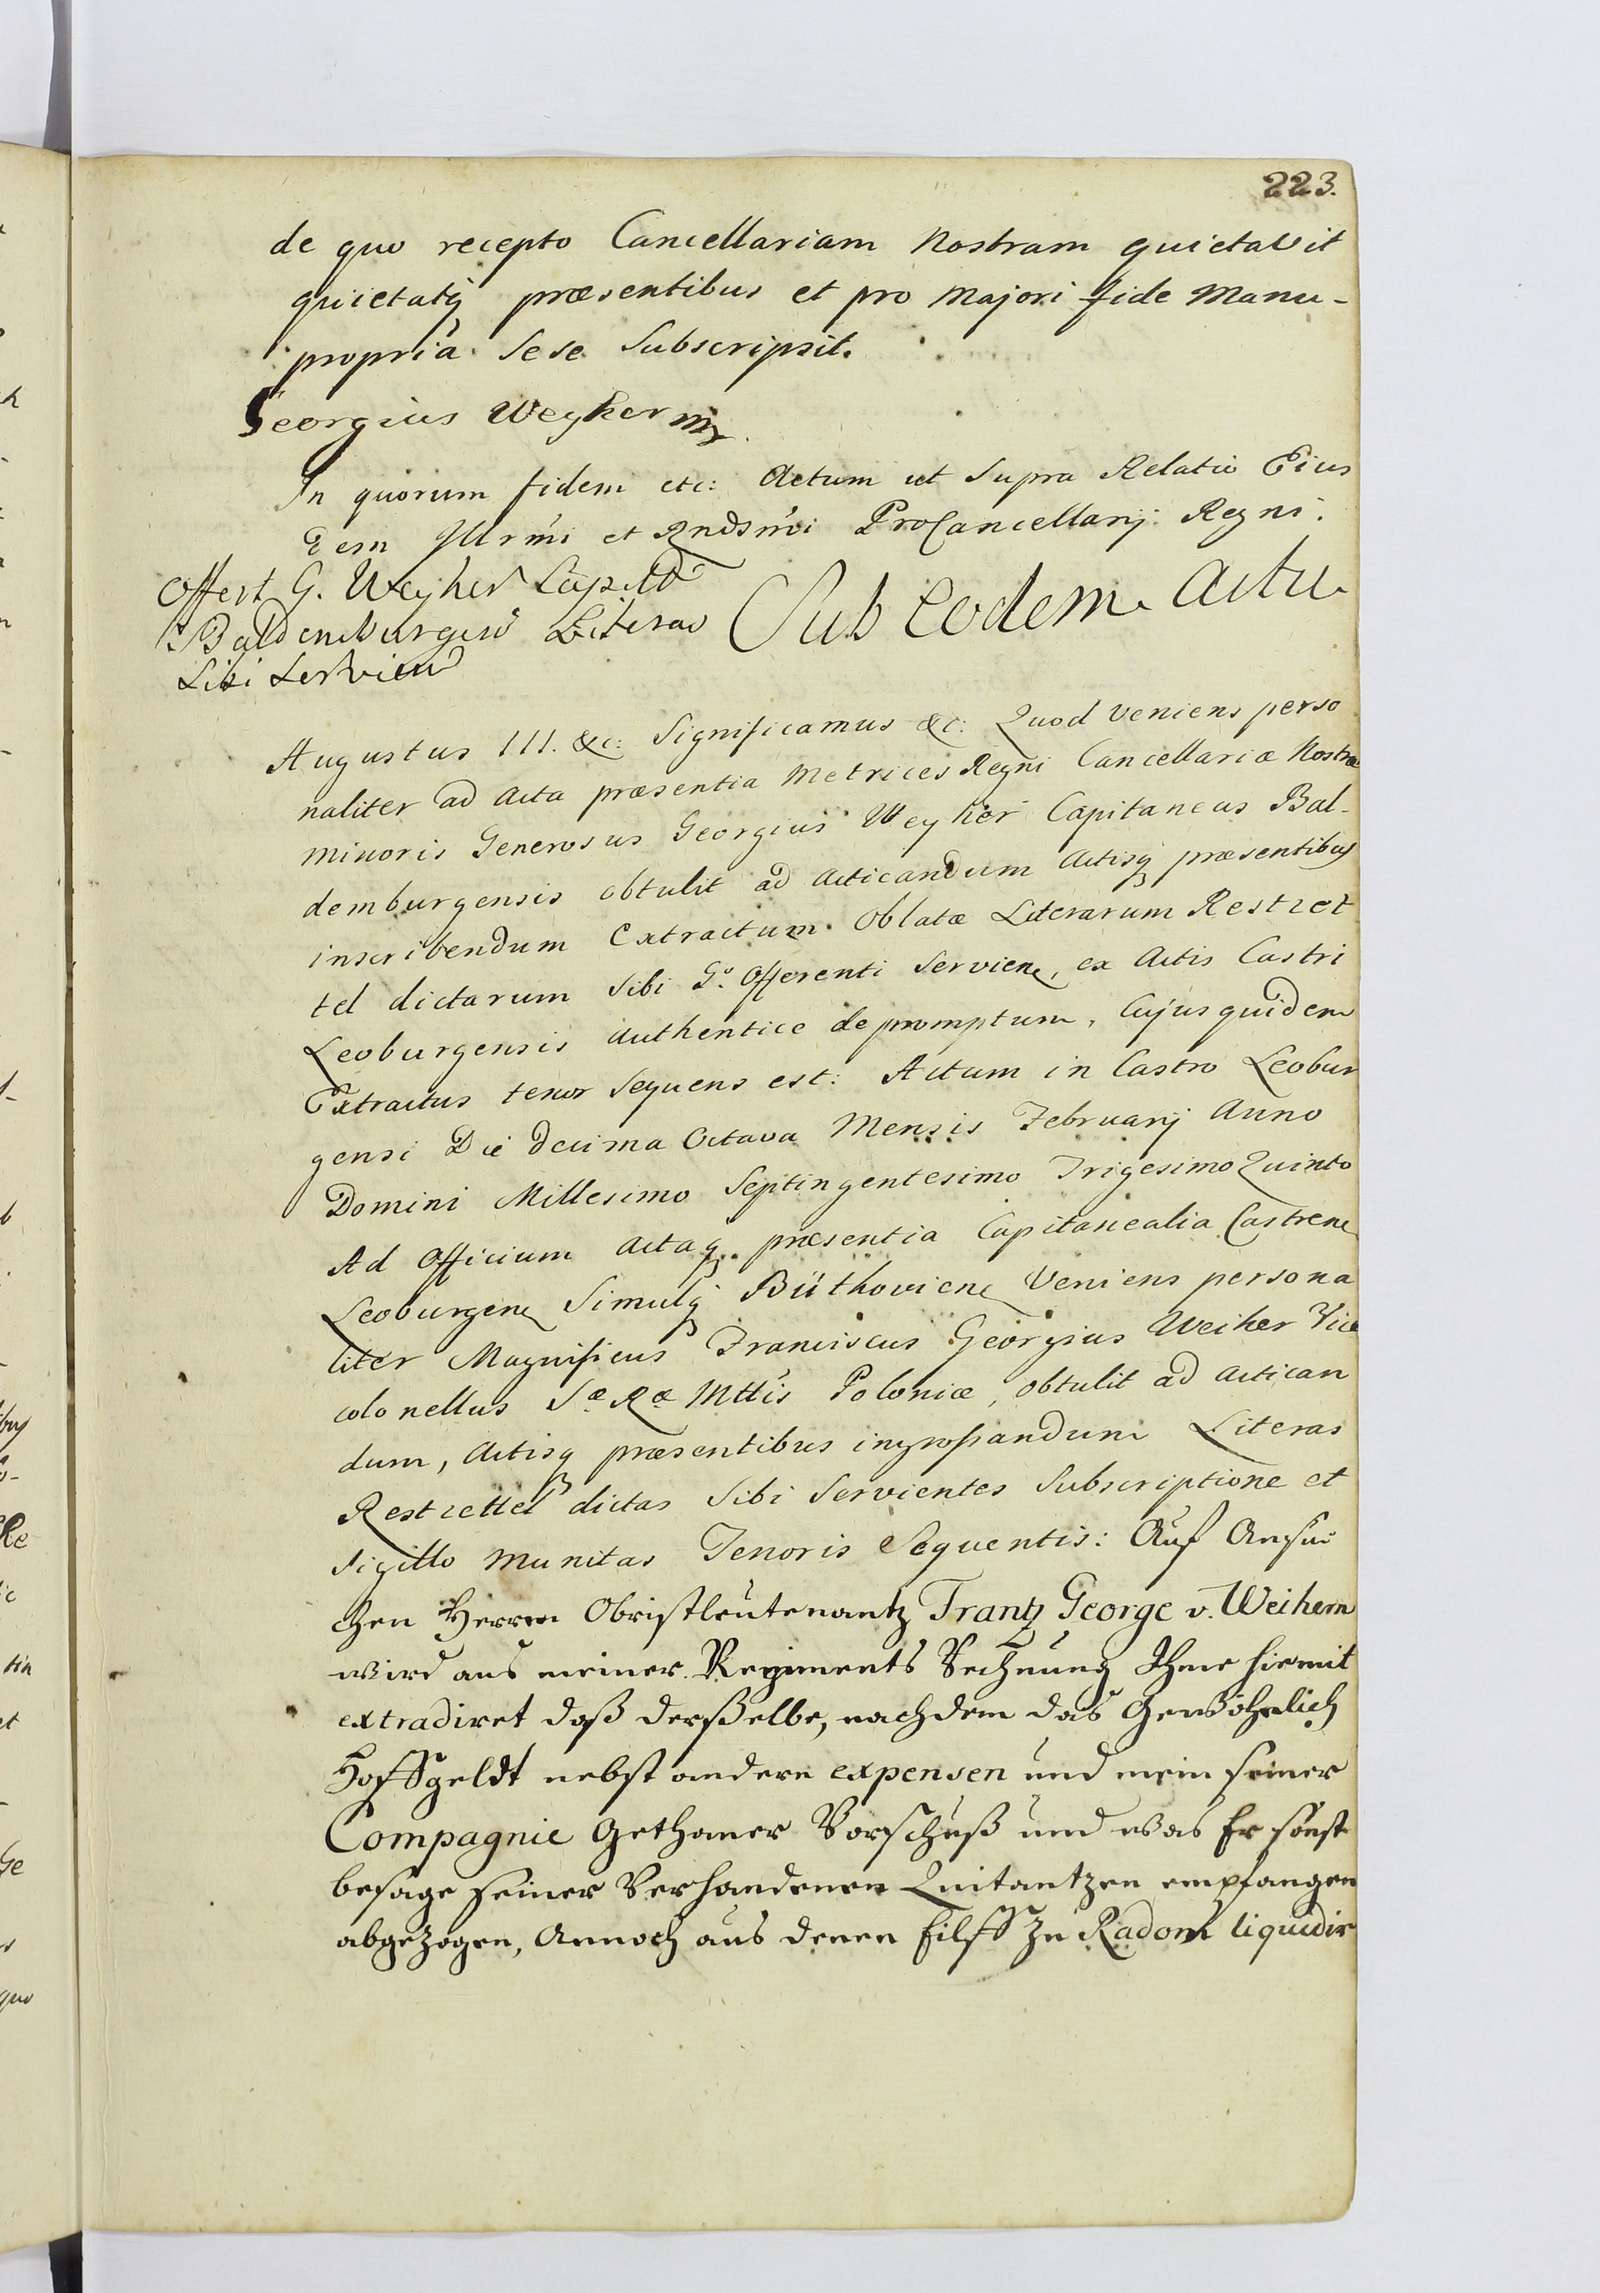 223.
de quo recepto Cancellariam Nostram quietavit
quietatq præsentibus et pro Majori fide Manu-
propria sese Subscripsit.
Georgius Weyher mp.
In quorum fidem etc: Actum ut Supra Relatio Eius
dem Illrmi et Rndsmi ProCancellarij Regni.
Offert G. Weyher Capita
Baldenburgen Literas
Sibi Servien
Sub Eodem Actu
Augustus III. &c: Significamus &c: Quod Veniens perso
naliter ad Acta præsentia Metrices Regni Cancellariæ Nostræ
minoris Generosus Georgius Weyher Capitaneus Bal-
demburgensis obtulit ad acticandum Actisq præsentibus
inscribendum Extractum Oblatæ Literarum Restzet
tel dictarum Sibi Go. Offerenti Servien, ex Actis Castri
Leoburgensis authentice depromptum, Cujusquidem
Extractus tenor Sequens est: Actum in Castro Leobur
gensi Die decima Octava Mensis Februarij Anno
Domini Millesimo Septingentesimo Trigesimo Quinto
Ad Officium Actaq præsentia Capitanealia Castren
Leoburgen Simulq Büthovien Veniens persona
liter Magnificus Franciscus Georgius Weiher Vice
colonellus Sæ Ræ Mttis Poloniæ, obtulit ad actican
dum, Actisq præsentibus ingrossandum Literas
Restzettel dictas Sibi Servientes Subscriptione et
Sigillo munitas Tenoris Sequentis: Auf Ansu
chen Herren Obristleutenantz Frantz George v. Weihern
wird aus meiner Regiments Rechnung Ihme hiemit
extradiret daß derßelbe, nachdem das Gewöhnlich
Hoffgeldt nebst andern expensen und mein seiner
Compagnie Gethaner Vorschuß und was Er sonst
besage seiner Verhandenen Quitantzen empfangen
abgezogen, Annoch aus denen Eilff zu Radom liquidir